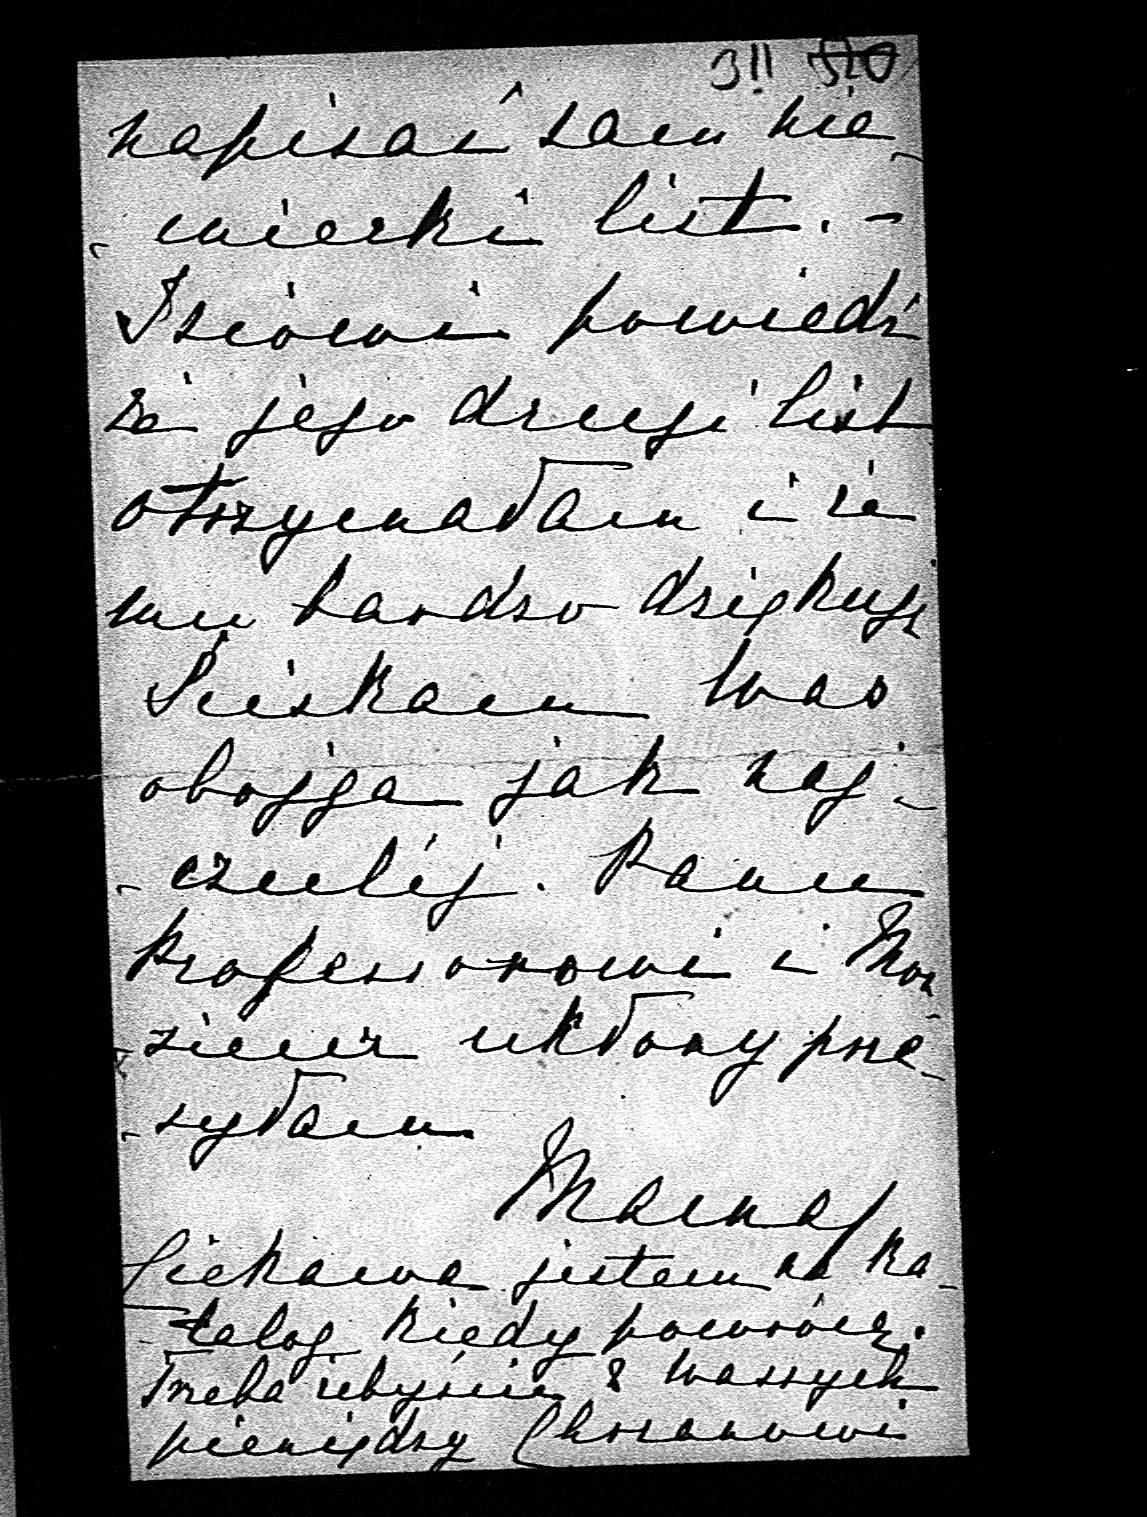 311 520
napisać sam nie-
-miecki list. -
Isiowi powiedź
że jego drugi list
otrzymałam i że
mu bardzo dziękuję
Ściskam Was
obojga jak naj-
-czuléj. Panu
Professorowi i
ukłony prze-
-syłam
Mama
Ciekawa jestem na ka-
-talog kiedy powrócę.
Trzeba żebyście z Waszych
pieniędzy Chrzanowi